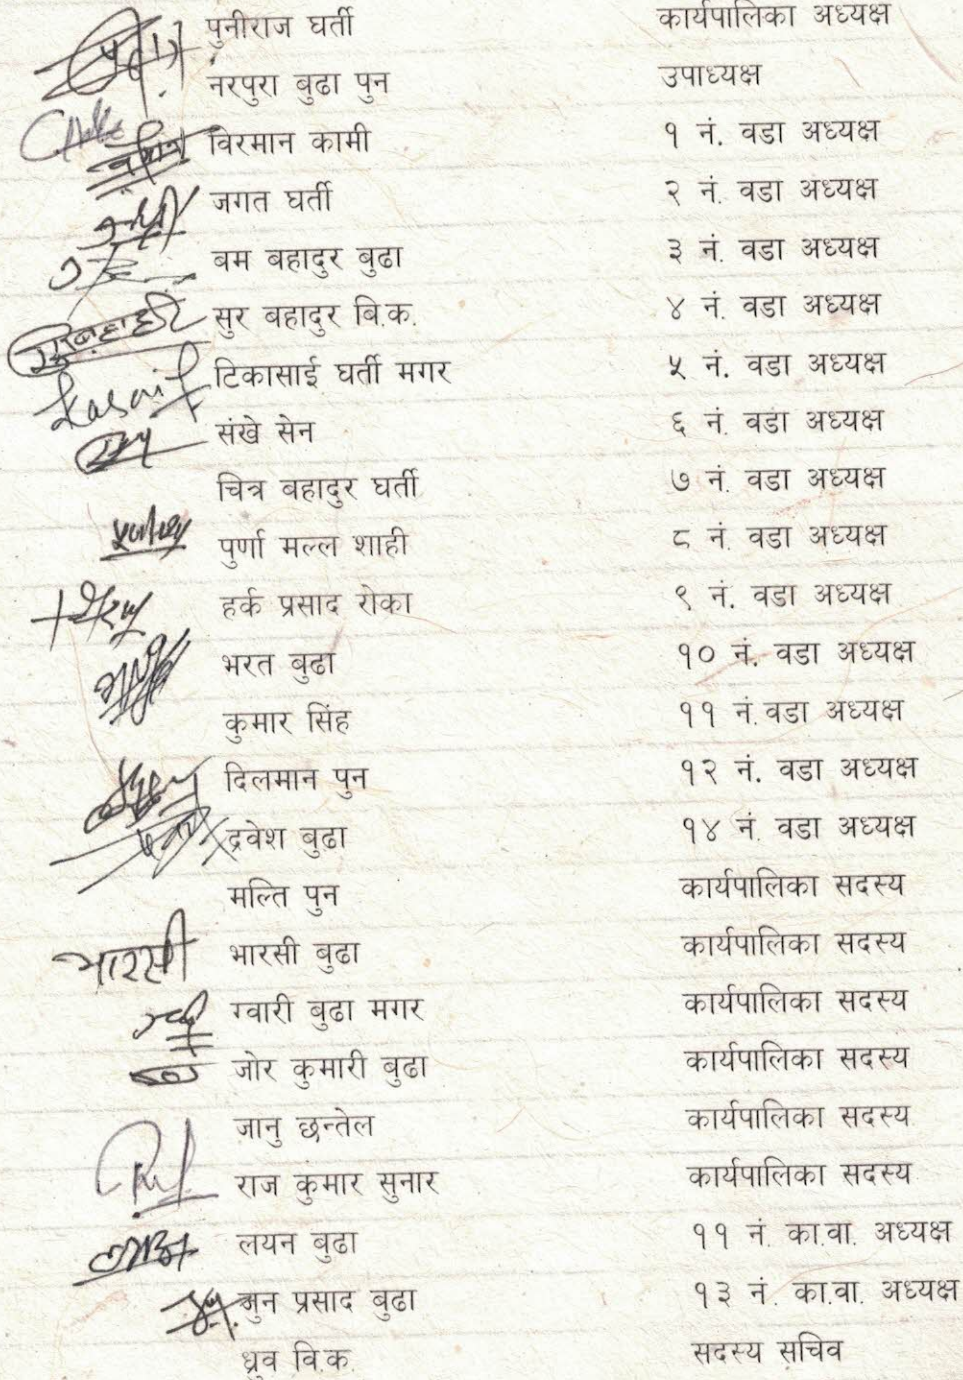 पुनीराज घर्ती कार्यपालिका अध्यक्ष
नरपुरा बुढा पुन उपाध्यक्ष
विरमान कामी १ नं. वडा अध्यक्ष
जगत घर्ती २ नं. वडा अध्यक्ष
बम बहादुर बुढा ३ नं. वडा अध्यक्ष
सुर बहादुर बि.क. ४ नं. वडा अध्यक्ष
टिकासाई घर्ती मगर ५ नं. वडा अध्यक्ष
संखे सेन ६ नं. वडा अध्यक्ष
चित्र बहादुर घर्ती ७ नं. वडा अध्यक्ष
पुर्णा मल्ल शाही ८ नं. वडा अध्यक्ष
हर्क प्रसाद रोका ९ नं. वडा अध्यक्ष
भरत बुढा १० नं. वडा अध्यक्ष
कुमार सिंह ११ नं.वडा अध्यक्ष
दिलमान पुन १२ नं. वडा अध्यक्ष
द्रवेश बुढा १४ नं. वडा अध्यक्ष
मल्ति पुन कार्यपालिका सदस्य
भारसी भारसी बुढा कार्यपालिका सदस्य
ग्वारी बुढा मगर कार्यपालिका सदस्य
जोर कुमारी बुढा कार्यपालिका सदस्य
जानु छन्तेल कार्यपालिका सदस्य
राज कुमार सुनार कार्यपालिका सदस्य
लयन बुढा ११ नं. का.वा. अध्यक्ष
जुन प्रसाद बुढा १३ नं. का.वा. अध्यक्ष
ध्रुव वि.क. सदस्य सचिव